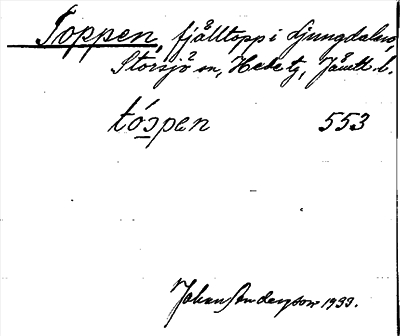 Toppen, fjälltopp i Ljungdalen,
Storsjö sn, Hede tg, Jämtl. l.
tóppen 553
Johan Anderson 1933.